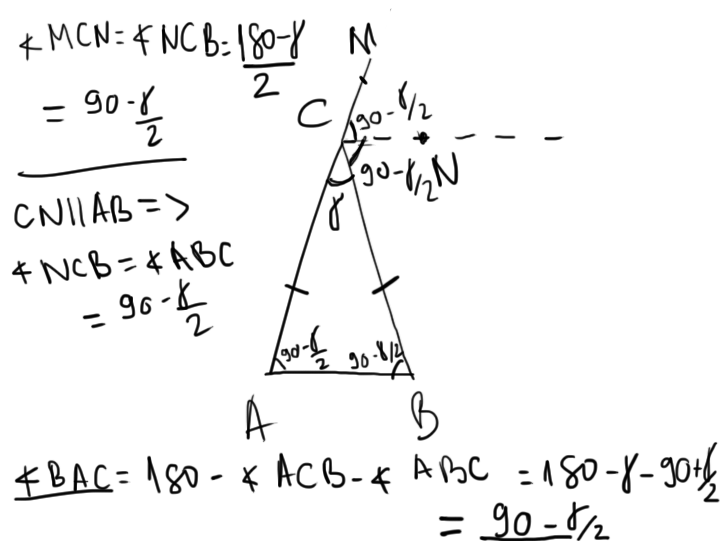 ∢MCN=∢NCB=180-γ/2
= 90-γ/2
CN||AB=>
∢NCB=∢ABC
= 90-γ/2
M
C
90-γ/2
90-γ/2
N
γ
90-γ/2
90-γ/2
A
B
∢BAC=180-∢ACB-∢ABC =180-γ-90+γ/2
= 90-γ/2